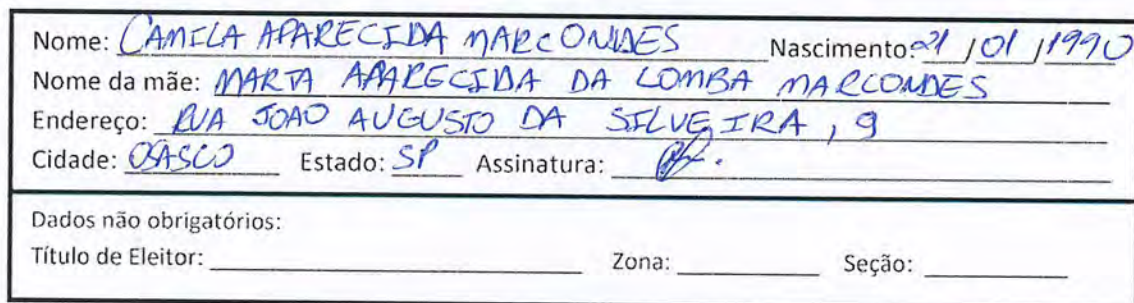 Nome: CAMILA APARECIDA MARCONDES Nascimento 21 / 01 / 1990
Nome da mãe: MARTA APARECIDA DA LOMBA MARCONDES
Endereço: RUA JOAO AUGUSTO DA SILVEIRA, 9
Cidade: OSASCO Estado: SP Assinatura:
Dados não obrigatórios:
Título de Eleitor: Zona: Seção: